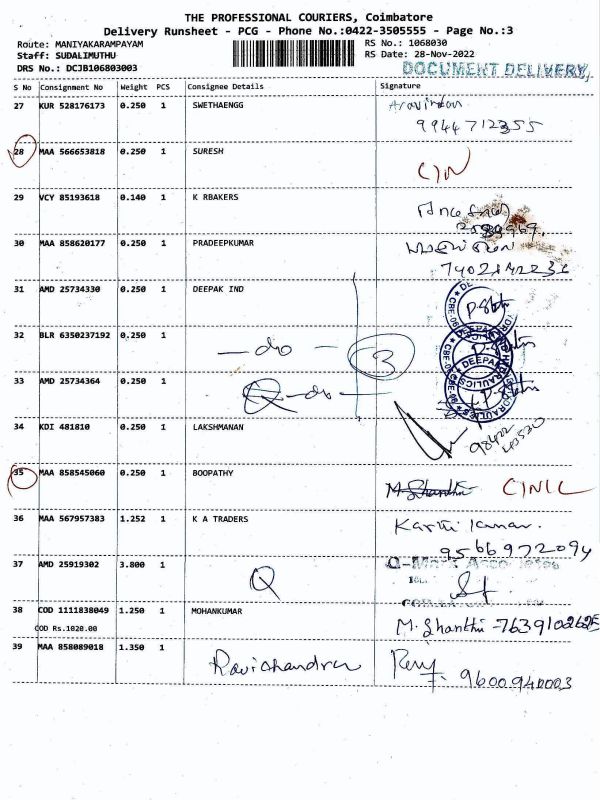 THE PROFESSIONAL COURIERS, Coimbatore
Delivery Runsheet - PCG - Phone No.:0422-3505555 - Page No.:3
Route: MANIYAKARAMPAYAM RS No.: 1068030
Staff: SUDALIMUTHU RS Date: 28-Nov-2022
DRS No.: DCJB106803003 DOCUMENT DELIVERY,
S No Consignment No Weight PCS Consignee Details Signature
27 KUR 528176173 0.250 1 SWETHAENGG Aravindan
9944712355
28 MAA 566653818 0.250 1 SURESH
29 VCY 85193618 0.140 1 K RBAKERS
30 MAA 858620177 0.250 1 PRADEEPKUMAR
31 AMD 25734330 0.250 1 DEEPAK IND
32 BLR 6350237192 0.250 1 —do— 3
33 AMD 25734364 0.250 1 —do—
34 KDI 481810 0.250 1 LAKSHMANAN
35 MAA 858545060 0.250 1 BOOPATHY M.Shanthi
36 MAA 567957383 1.252 1 K A TRADERS Karthikumar.
9566972094
37 AMD 25919302 3.800 1 Q
38 COD 1111838049 1.250 1 MOHANKUMAR M.Shanthi -7639102625
COD Rs.1020.00
39 MAA 858089018 1.350 1 Ravichandran 9600940003